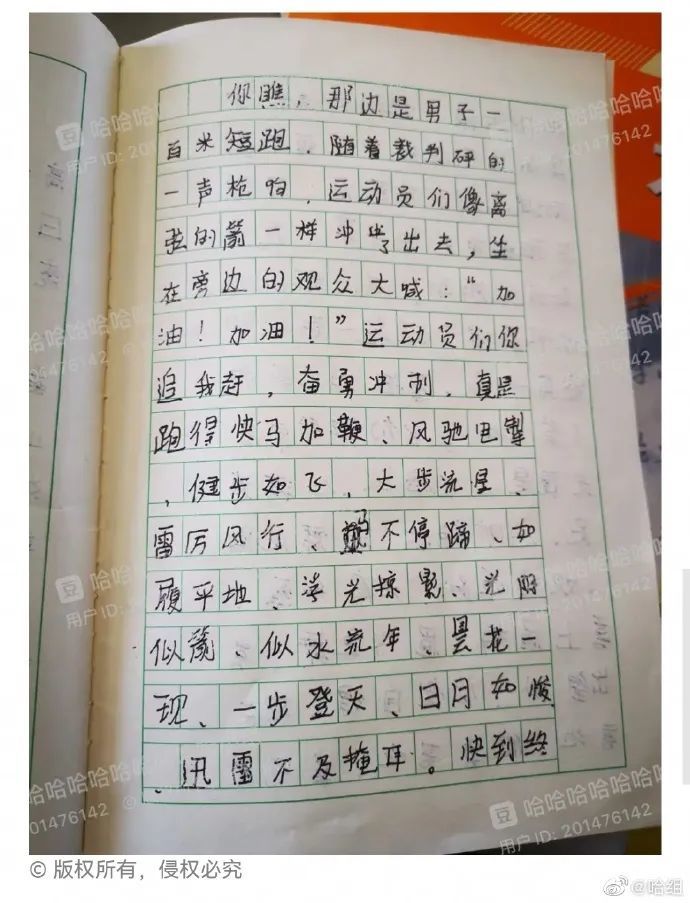 你瞧，那边是男子一
百米短跑，随着裁判砰的
一声枪响，运动员们像离
弦的箭一样冲了出去，坐
在旁边的观众大喊：“加
油！加油！”运动员们你
追我赶，奋勇冲刺，真是
跑得快马加鞭、风驰电掣
、健步如飞、大步流星、
雷厉风行、马不停蹄、如
履平地、浮光掠影、光阴
似箭、似水流年、昙花一
现、一步登天、日月如梭
、迅雷不及掩耳。快到终
豆 哈哈哈哈哈
用户 ID: 201476142
© 版权所有，侵权必究
@哈组